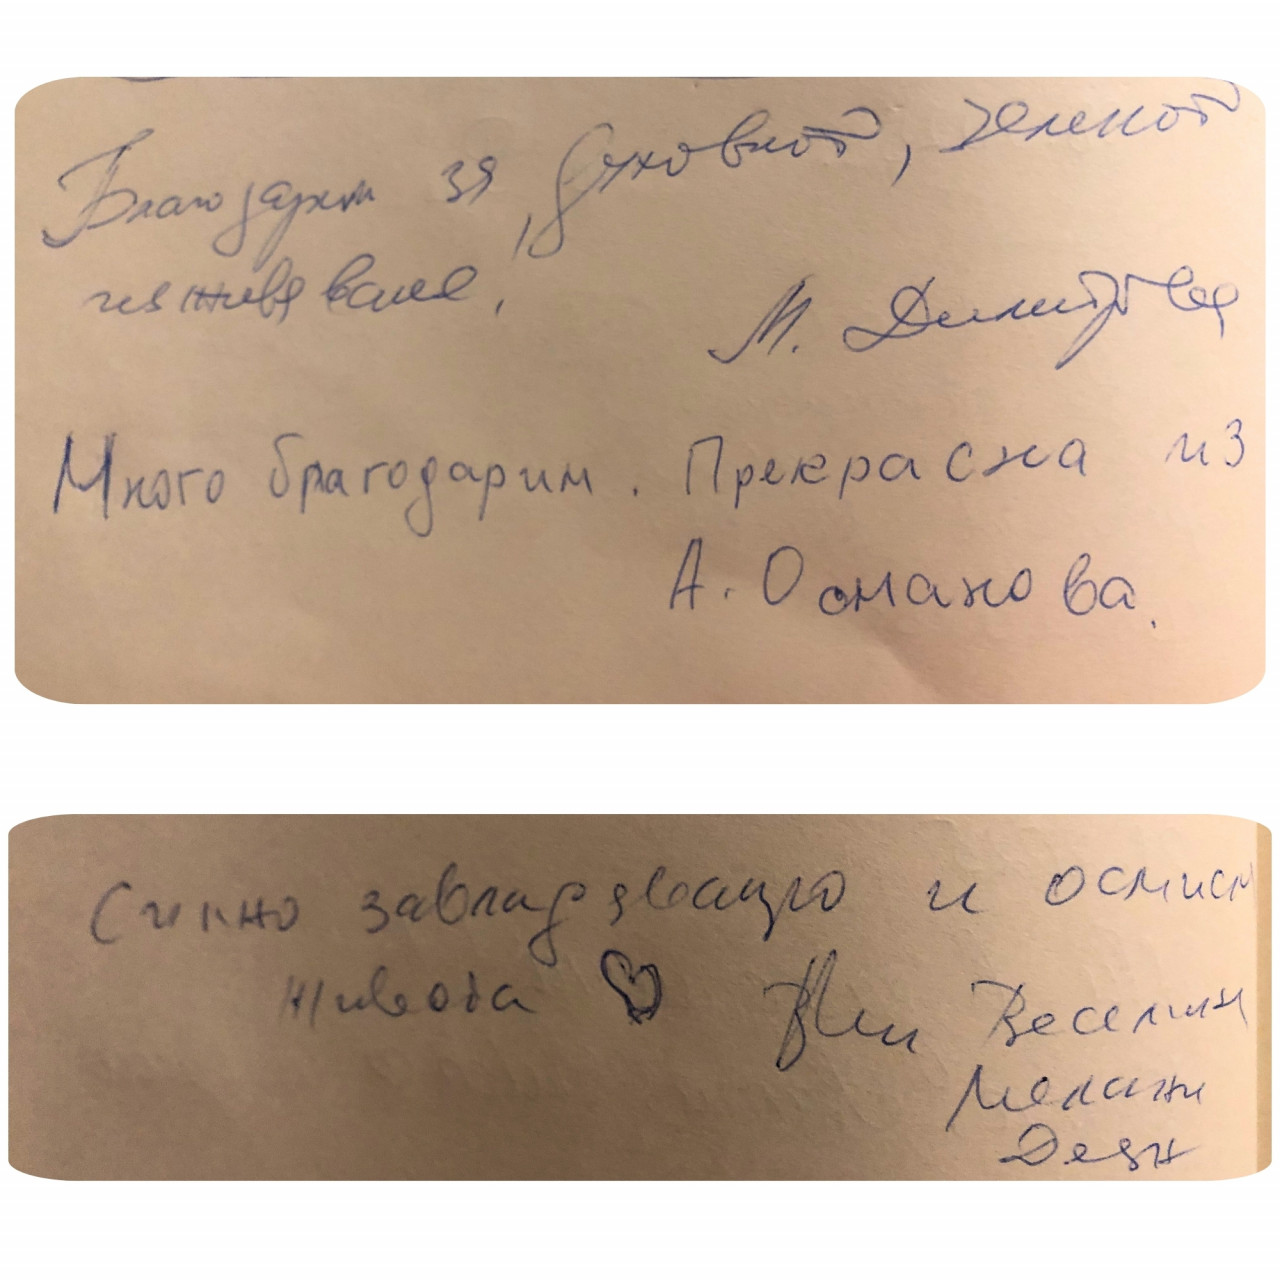 Благодарим за духовнот, зеленот
изживяване,
М. Димитрова
Много благодарим. Прекрасна из
А. Османова.
Силно завладяващо и осмисл
живота
Веселин
Мелани
Деян